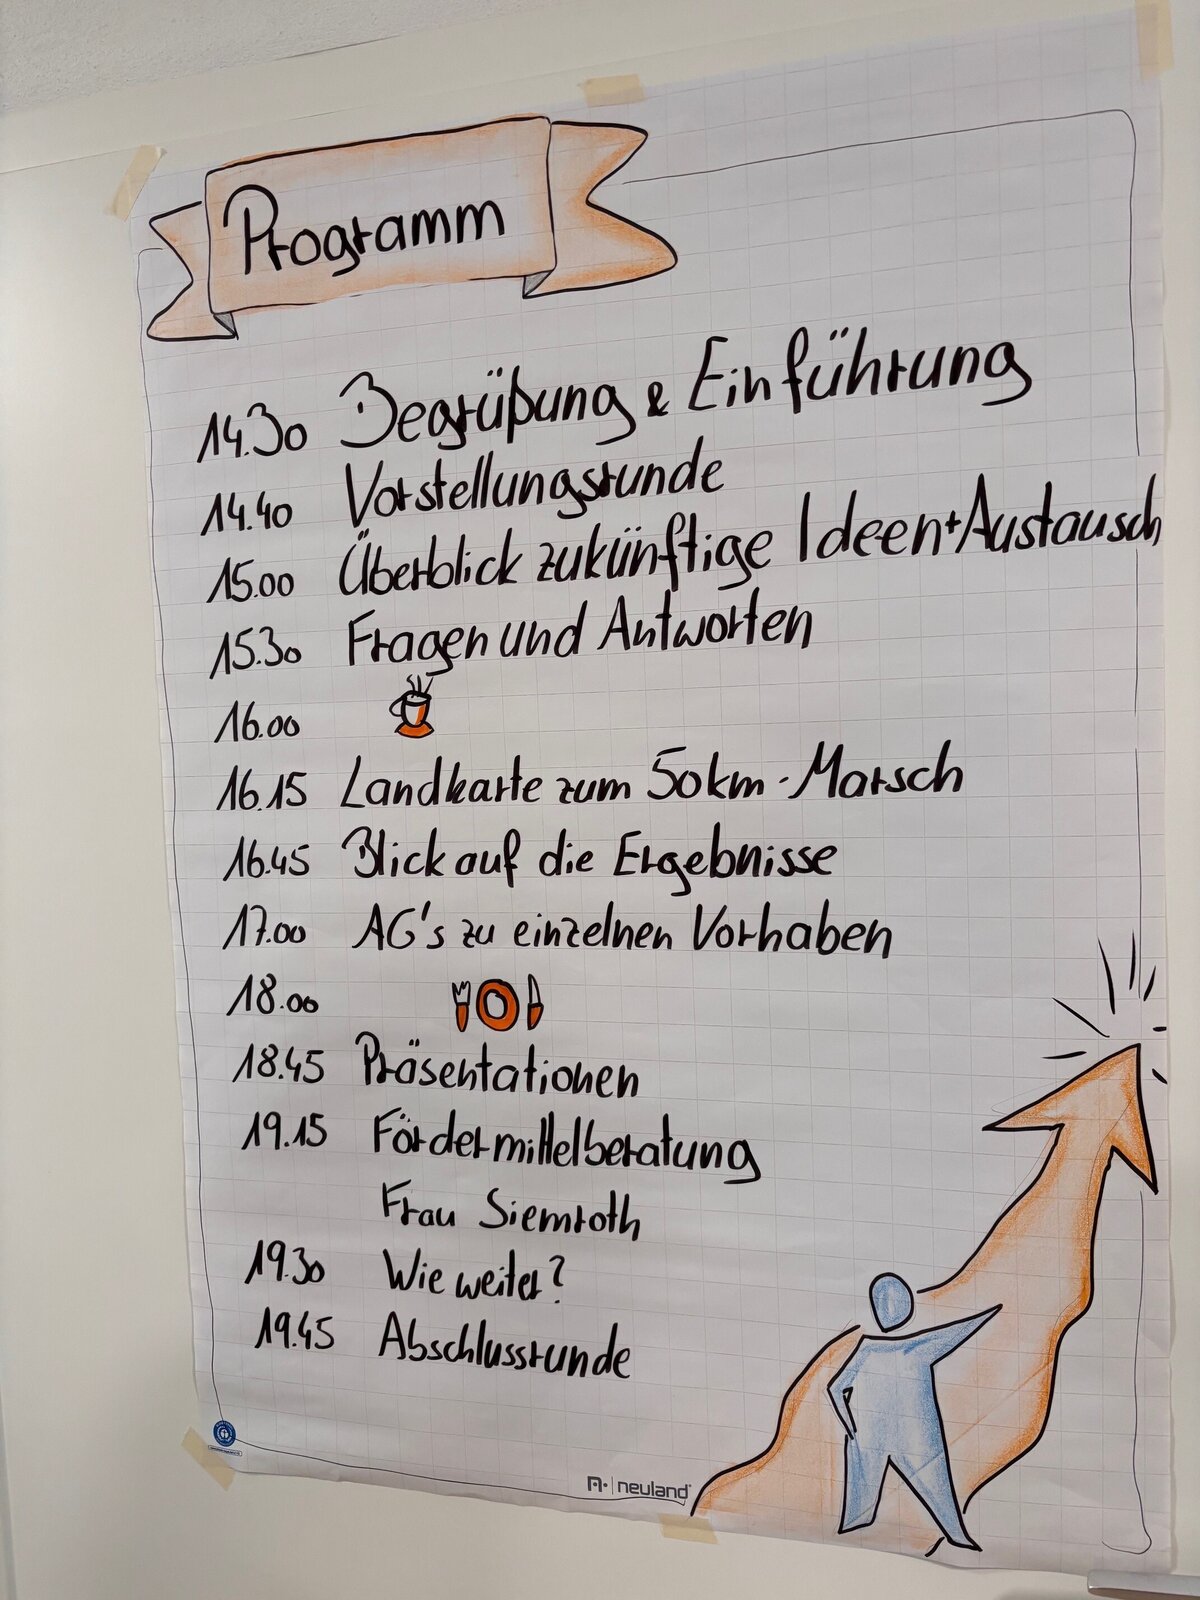 Programm
14.30 Begrüßung & Einführung
14.40 Vorstellungsrunde
15.00 Überblick zukünftige Ideen+Austausch
15.30 Fragen und Antworten
16.00
16.15 Landkarte zum 50km-Marsch
16.45 Blick auf die Ergebnisse
17.00 AG's zu einzelnen Vorhaben
18.00
18.45 Präsentationen
19.15 Fördermittelberatung
Frau Siemroth
19.30 Wie weiter?
19.45 Abschlussrunde
neuland